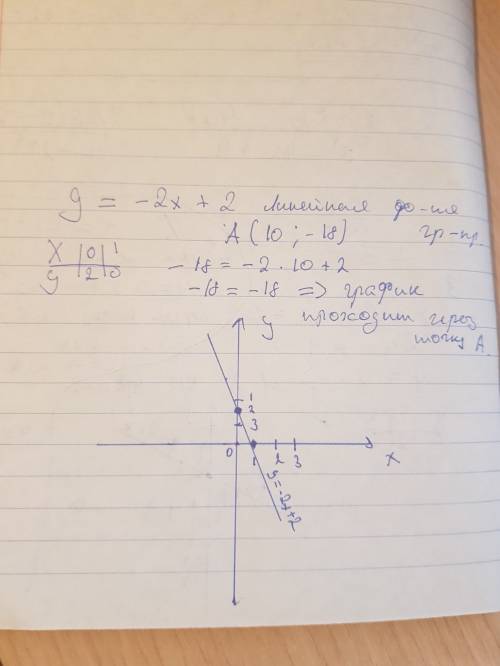 y = -2x + 2 линейная ф-ия
гр-пр.
A (10 ; -18)
x | 0 | 1
y | 2 | 0
-18 = -2 · 10 + 2
-18 = -18 => график
проходит через
точку A.
y
1
2
3
0 1 2 3
x
y = -2x+2